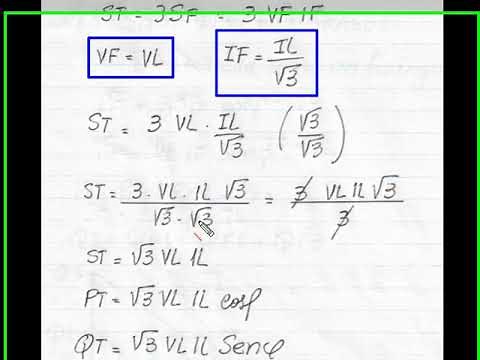 ST = 3SF = 3 VF IF
VF = VL IF = IL/√3
ST = 3 VL · IL/√3 (√3/√3)
ST = 3 · VL · IL √3 / √3 · √3 = 3 VL IL √3 / 3
ST = √3 VL IL
PT = √3 VL IL cosφ
QT = √3 VL IL Senφ